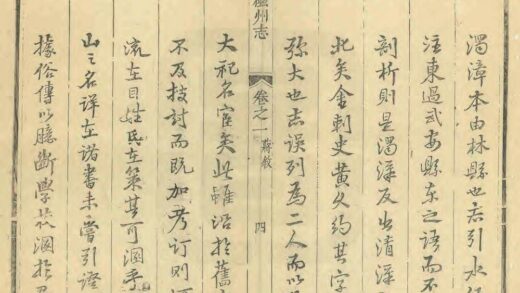 濁漳本由林縣也若引水經
注東過武安縣東之語而不
剖析則是濁漳反出清漳
北矣金刺史黃久約其字
弥大也志误列為二人而以
大祀名宦矣此雖沿於舊
不及技討而既加考订则河
流在目姓氏在策其可溷乎
山之名詳在诸書未嘗引證
據俗傳以臆斷學校溷於
磁州志
卷之一
蔣敘
四